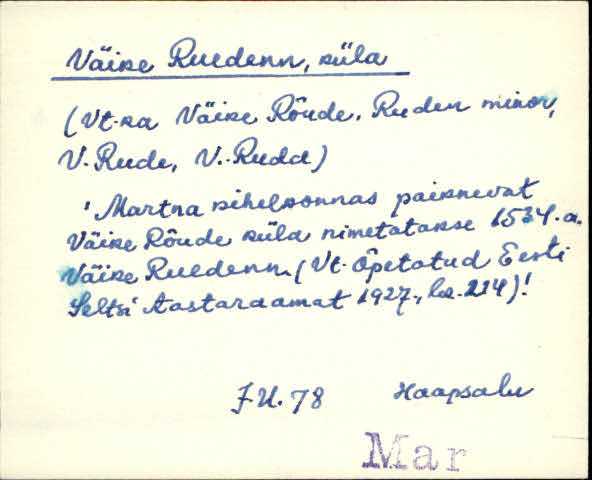 Väike Ruedenn, küla
(Vt. ka Väike Rõude, Ruden minor,
V. Rude, V. Rudd)
'Martna kihelkonnas paiknevat
Väike Rõude küla nimetatakse 1534. a.
Väike Ruedenn. (Vt. Õpetatud Eesti
Seltsi Aastaraamat 1927, lk. 214)!
J.U. 78 Haapsalu
Mar